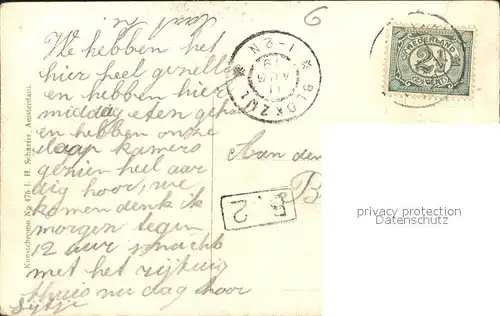 We hebben het
hier heel gezellig
en hebben hier
middag eten gehad
en hebben onze
slaap kamers
gezien heel aar
dig hoor, we
komen denk ik
morgen tegen
12 uur
met het rijtuig
thuis nu dag hoor
Sijtje
Aan den
B
6
NEDERLAND
2½
BLOKZIJL
1-2N
2
Kunstchromo No 476 J. H. Schaefer Amsterdam.
privacy protection
Datenschutz